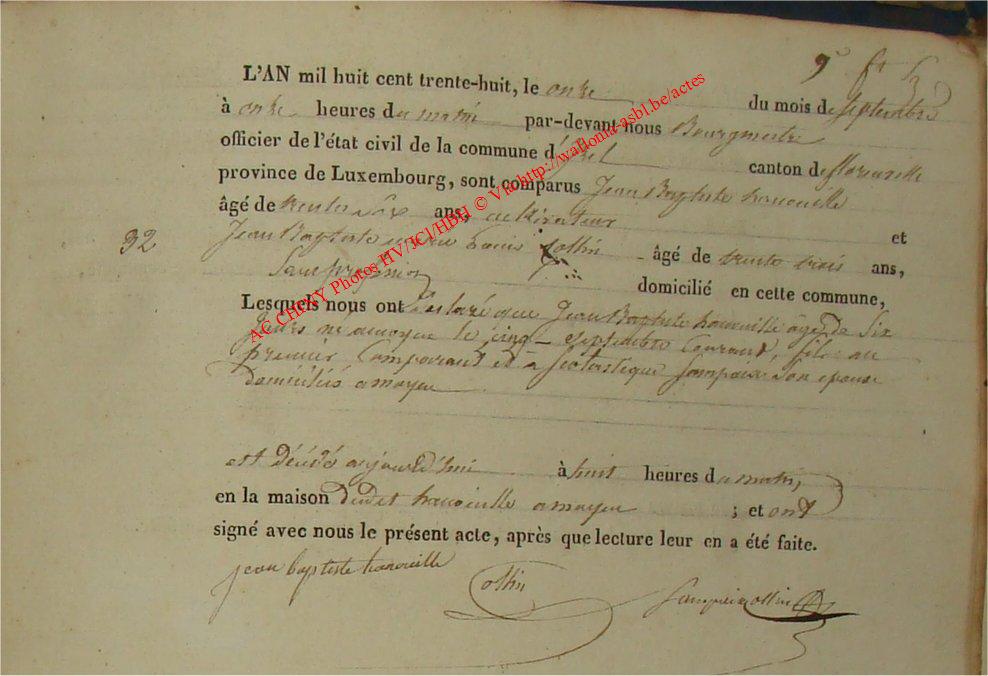 L'AN mil huit cent trente-huit, le onze du mois de septembre
à onze heures du matin par-devant nous Bourgmestre
officier de l'état civil de la commune d'izel canton de florenville
province de Luxembourg, sont comparus Jean Baptiste hanouille
âgé de trente ans, cultivateur et
Jean Baptiste Collin âgé de trente trois ans,
domicilié en cette commune,
32
Lesquels nous ont déclaré que Jean Baptiste hanouille âgé de six
jours né a moyen le cinq septembre courant, fils au
premier Comparant et a scolastique sampaix son epouse
domiciliés a moyen
est décédé aujourd'hui à huit heures du matin,
en la maison dudet hanouille a moyen ; et ont
signé avec nous le présent acte, après que lecture leur en a été faite.
jean baptiste hanouille
Collin
AC CHINY Photos HV/JCl/HBH © Via http://wallonia-asbl.be/actes